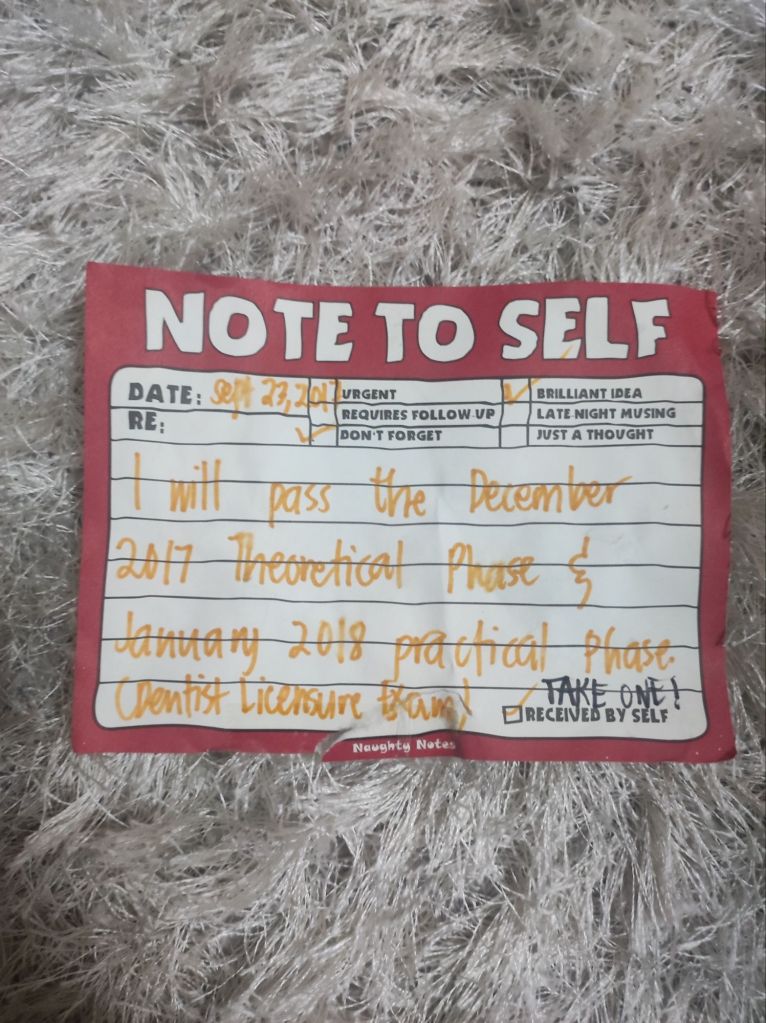 NOTE TO SELF
DATE: Sept 23, 2017 URGENT BRILLIANT IDEA
RE: REQUIRES FOLLOW-UP LATE-NIGHT MUSING
DON'T FORGET JUST A THOUGHT
I will pass the December
2017 Theoretical Phase &
January 2018 practical Phase.
(Dentist Licensure Exam)
TAKE ONE!
RECEIVED BY SELF
Naughty Notes